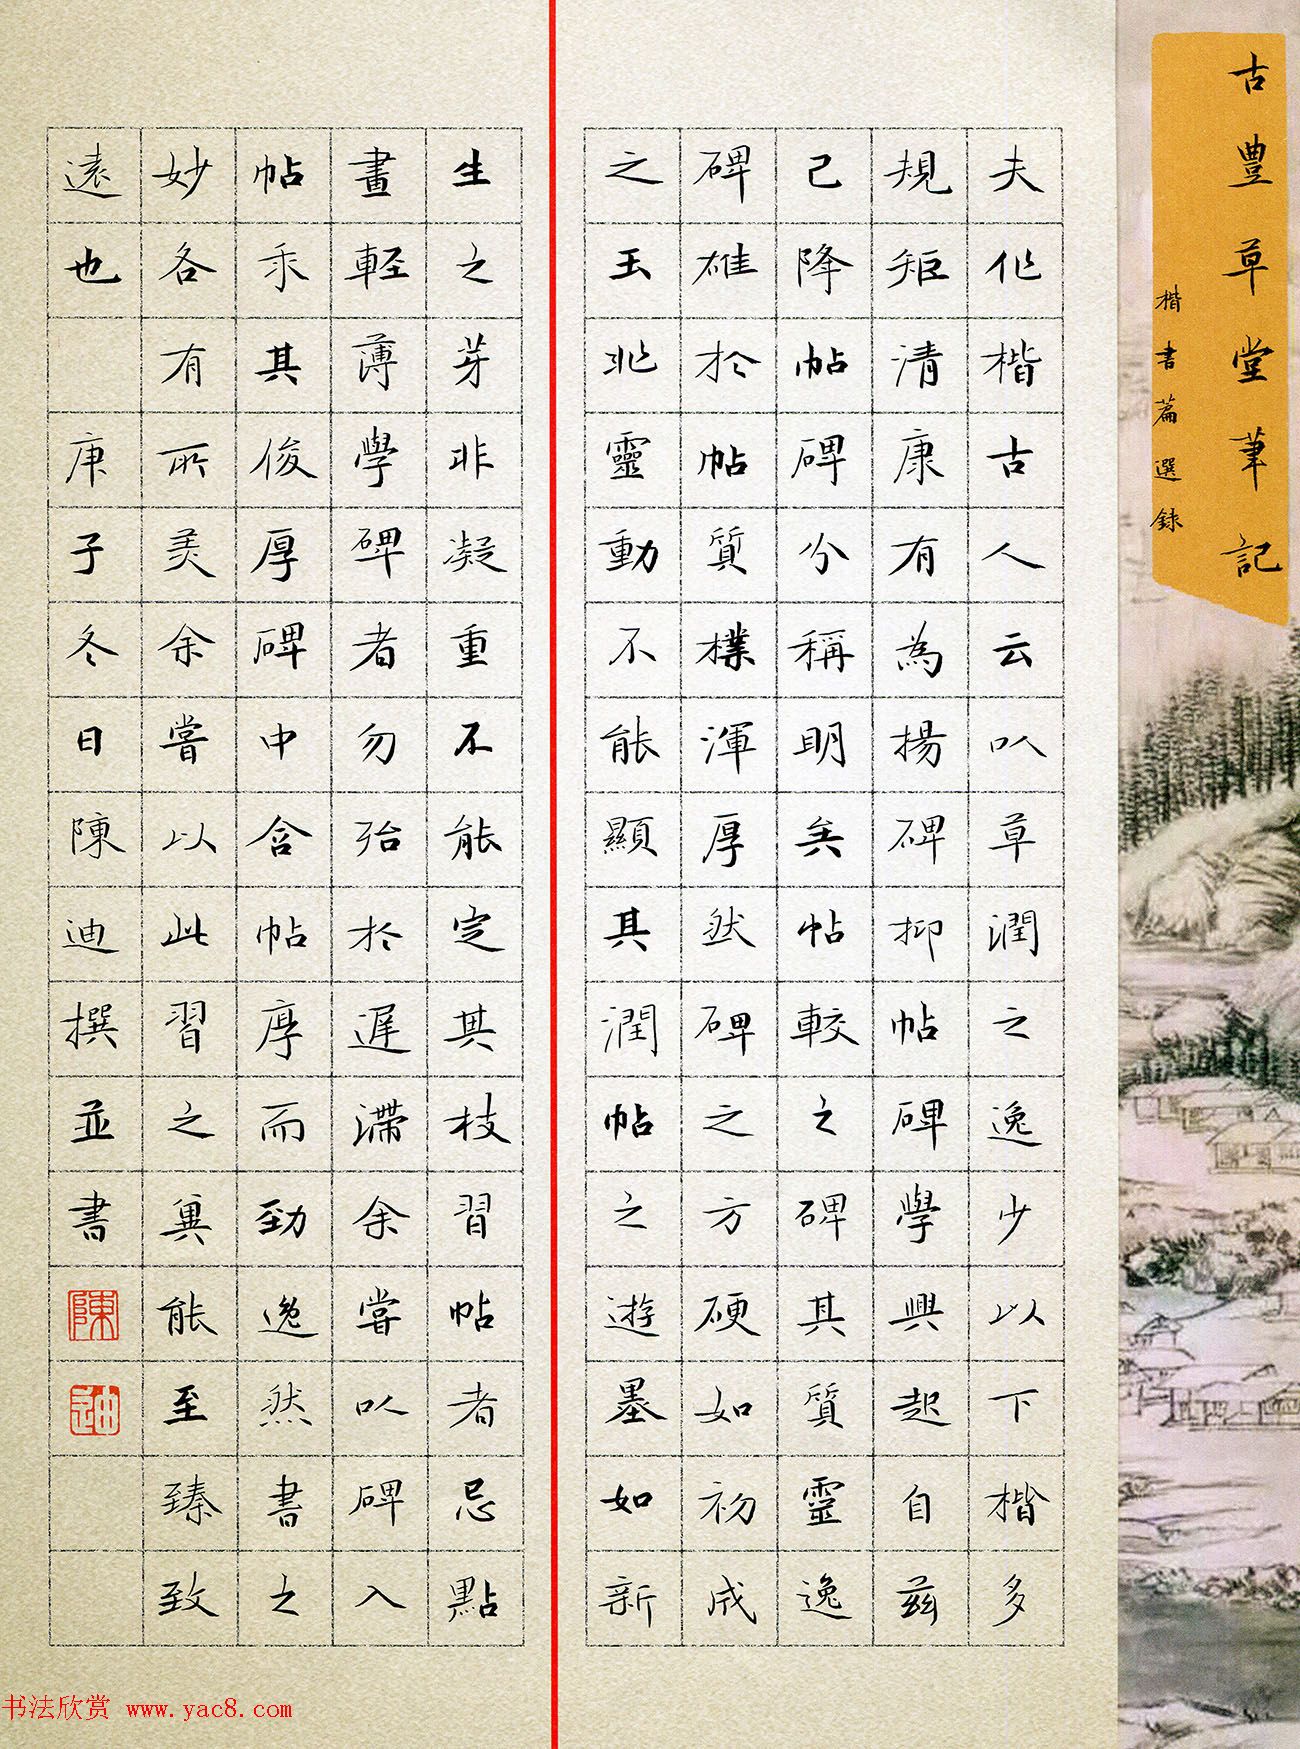 古豊草堂筆記
楷書篇選録
夫作楷古人云以草潤之逸少以下楷多
規矩清康有為揚碑抑帖碑學興起自茲
已降帖碑分稱明矣帖較之碑其質靈逸
碑雄於帖質樸渾厚然碑之方硬如初成
之玉非靈動不能顯其潤帖之遊墨如新
生之芽非凝重不能定其枝習帖者忌點
畫輕薄學碑者勿殆於遲滯余嘗以碑入
帖其俊厚碑中含帖厚而勁逸然書之
妙各有所美余嘗以此習之冀能至臻致
遠也 庚子冬日陳迪撰並書
陳
迪
书法欣赏 www.yac8.com